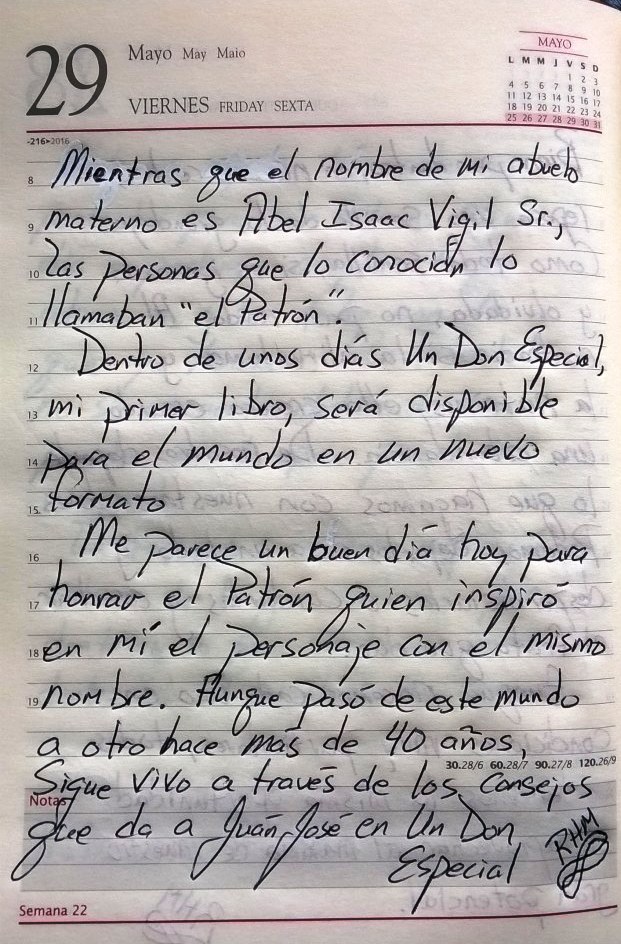 29
Mayo May Maio
VIERNES FRIDAY SEXTA
MAYO
L M M J V S D
1 2 3
4 5 6 7 8 9 10
11 12 13 14 15 16 17
18 19 20 21 22 23 24
25 26 27 28 29 30 31
-216>2016
8 Mientras que el nombre de mi abuelo
9 materno es Abel Isaac Vigil Sr.,
10 las personas que lo conocían lo
11 llamaban "el Patrón".
12 Dentro de unos días Un Don Especial,
13 mi primer libro, será disponible
14 para el mundo en un nuevo
15 formato
16 Me parece un buen día hoy para
17 honrar el Patrón quien inspiró
18 en mí el personaje con el mismo
19 nombre. Aunque pasó de este mundo
a otro hace más de 40 años,
30.28/6 60.28/7 90.27/8 120.26/9
Sigue vivo a través de los consejos
Notas
que da a Juan José en Un Don
Especial
RHM
Semana 22